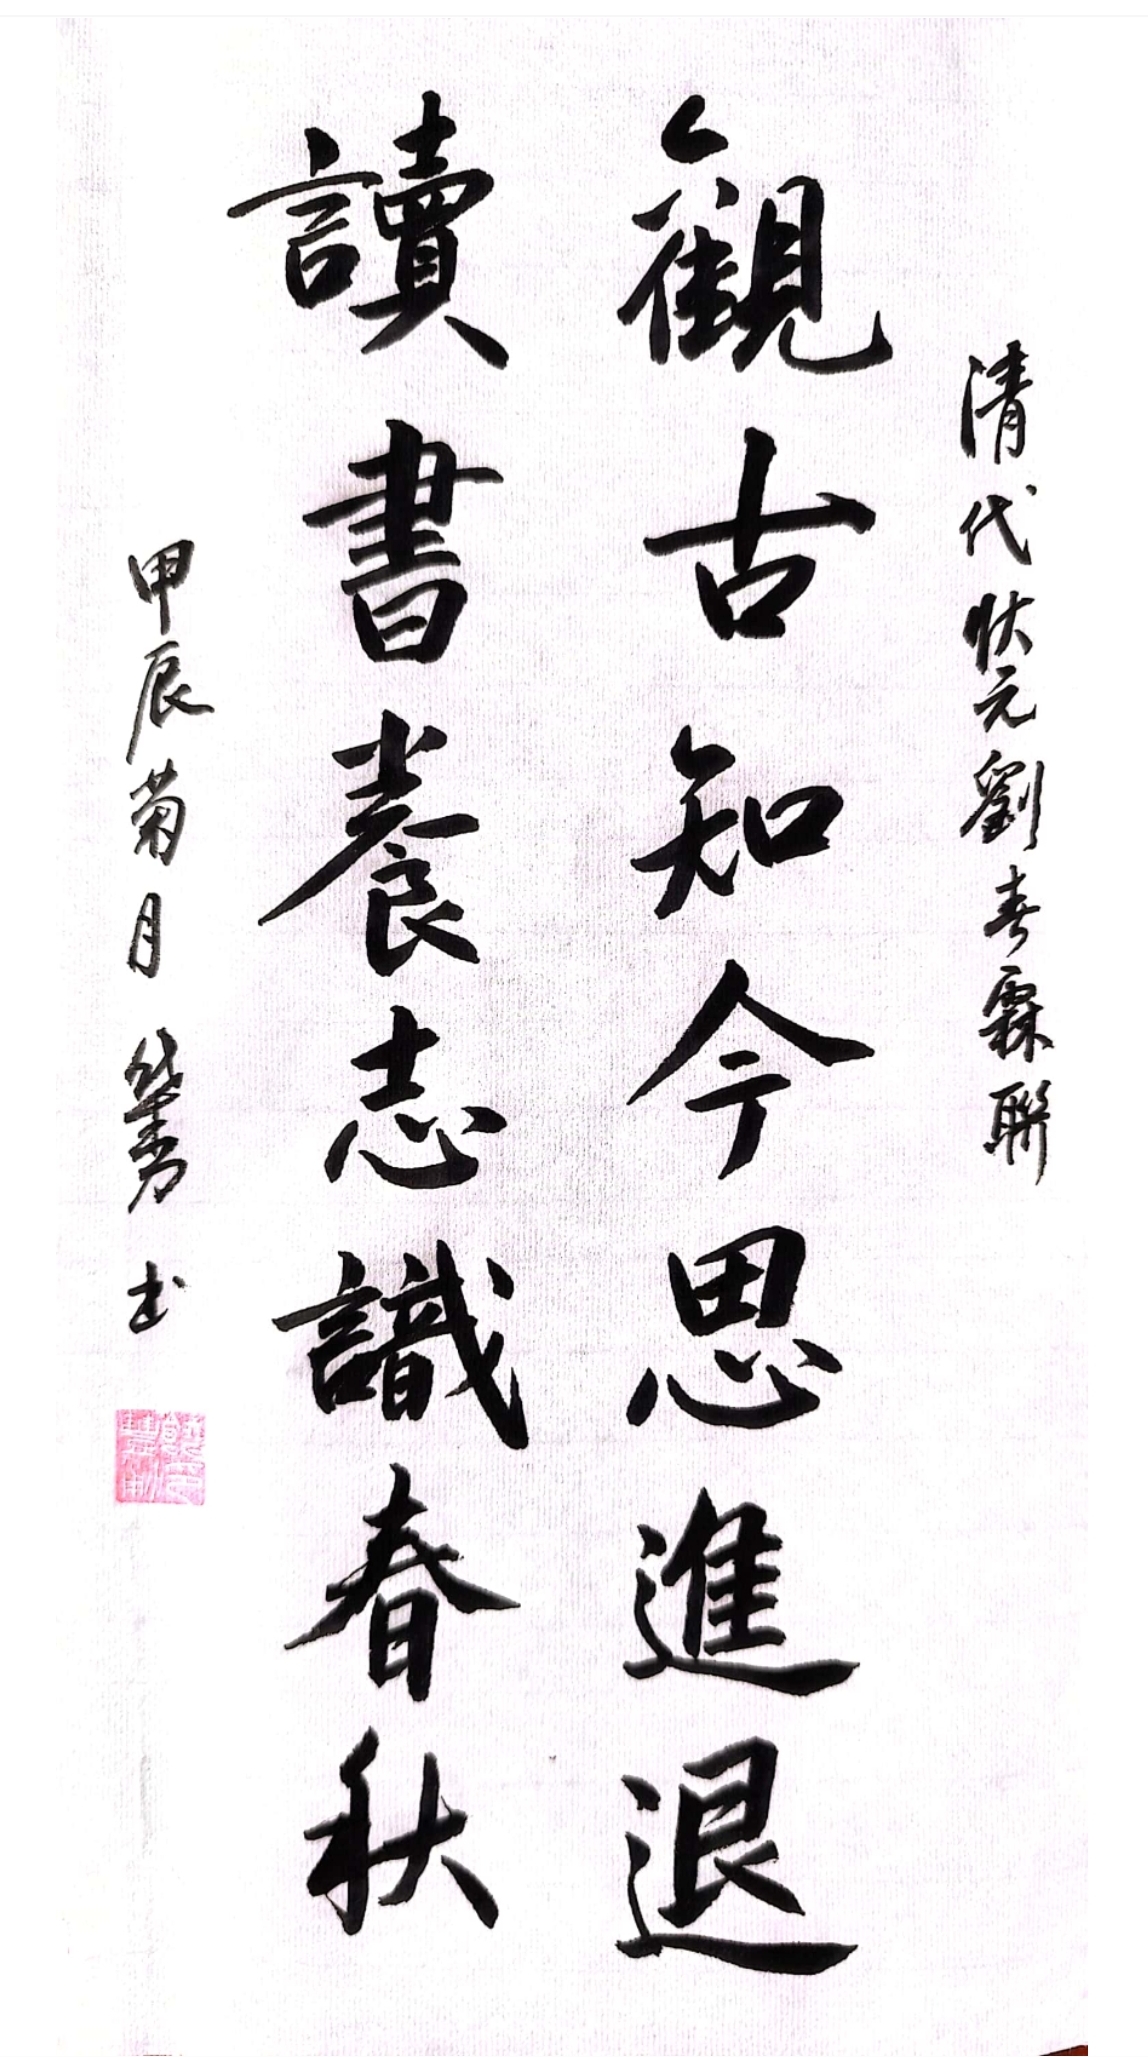 清代状元劉春霖聯
觀古知今思進退
讀書養志識春秋
甲辰菊月 书